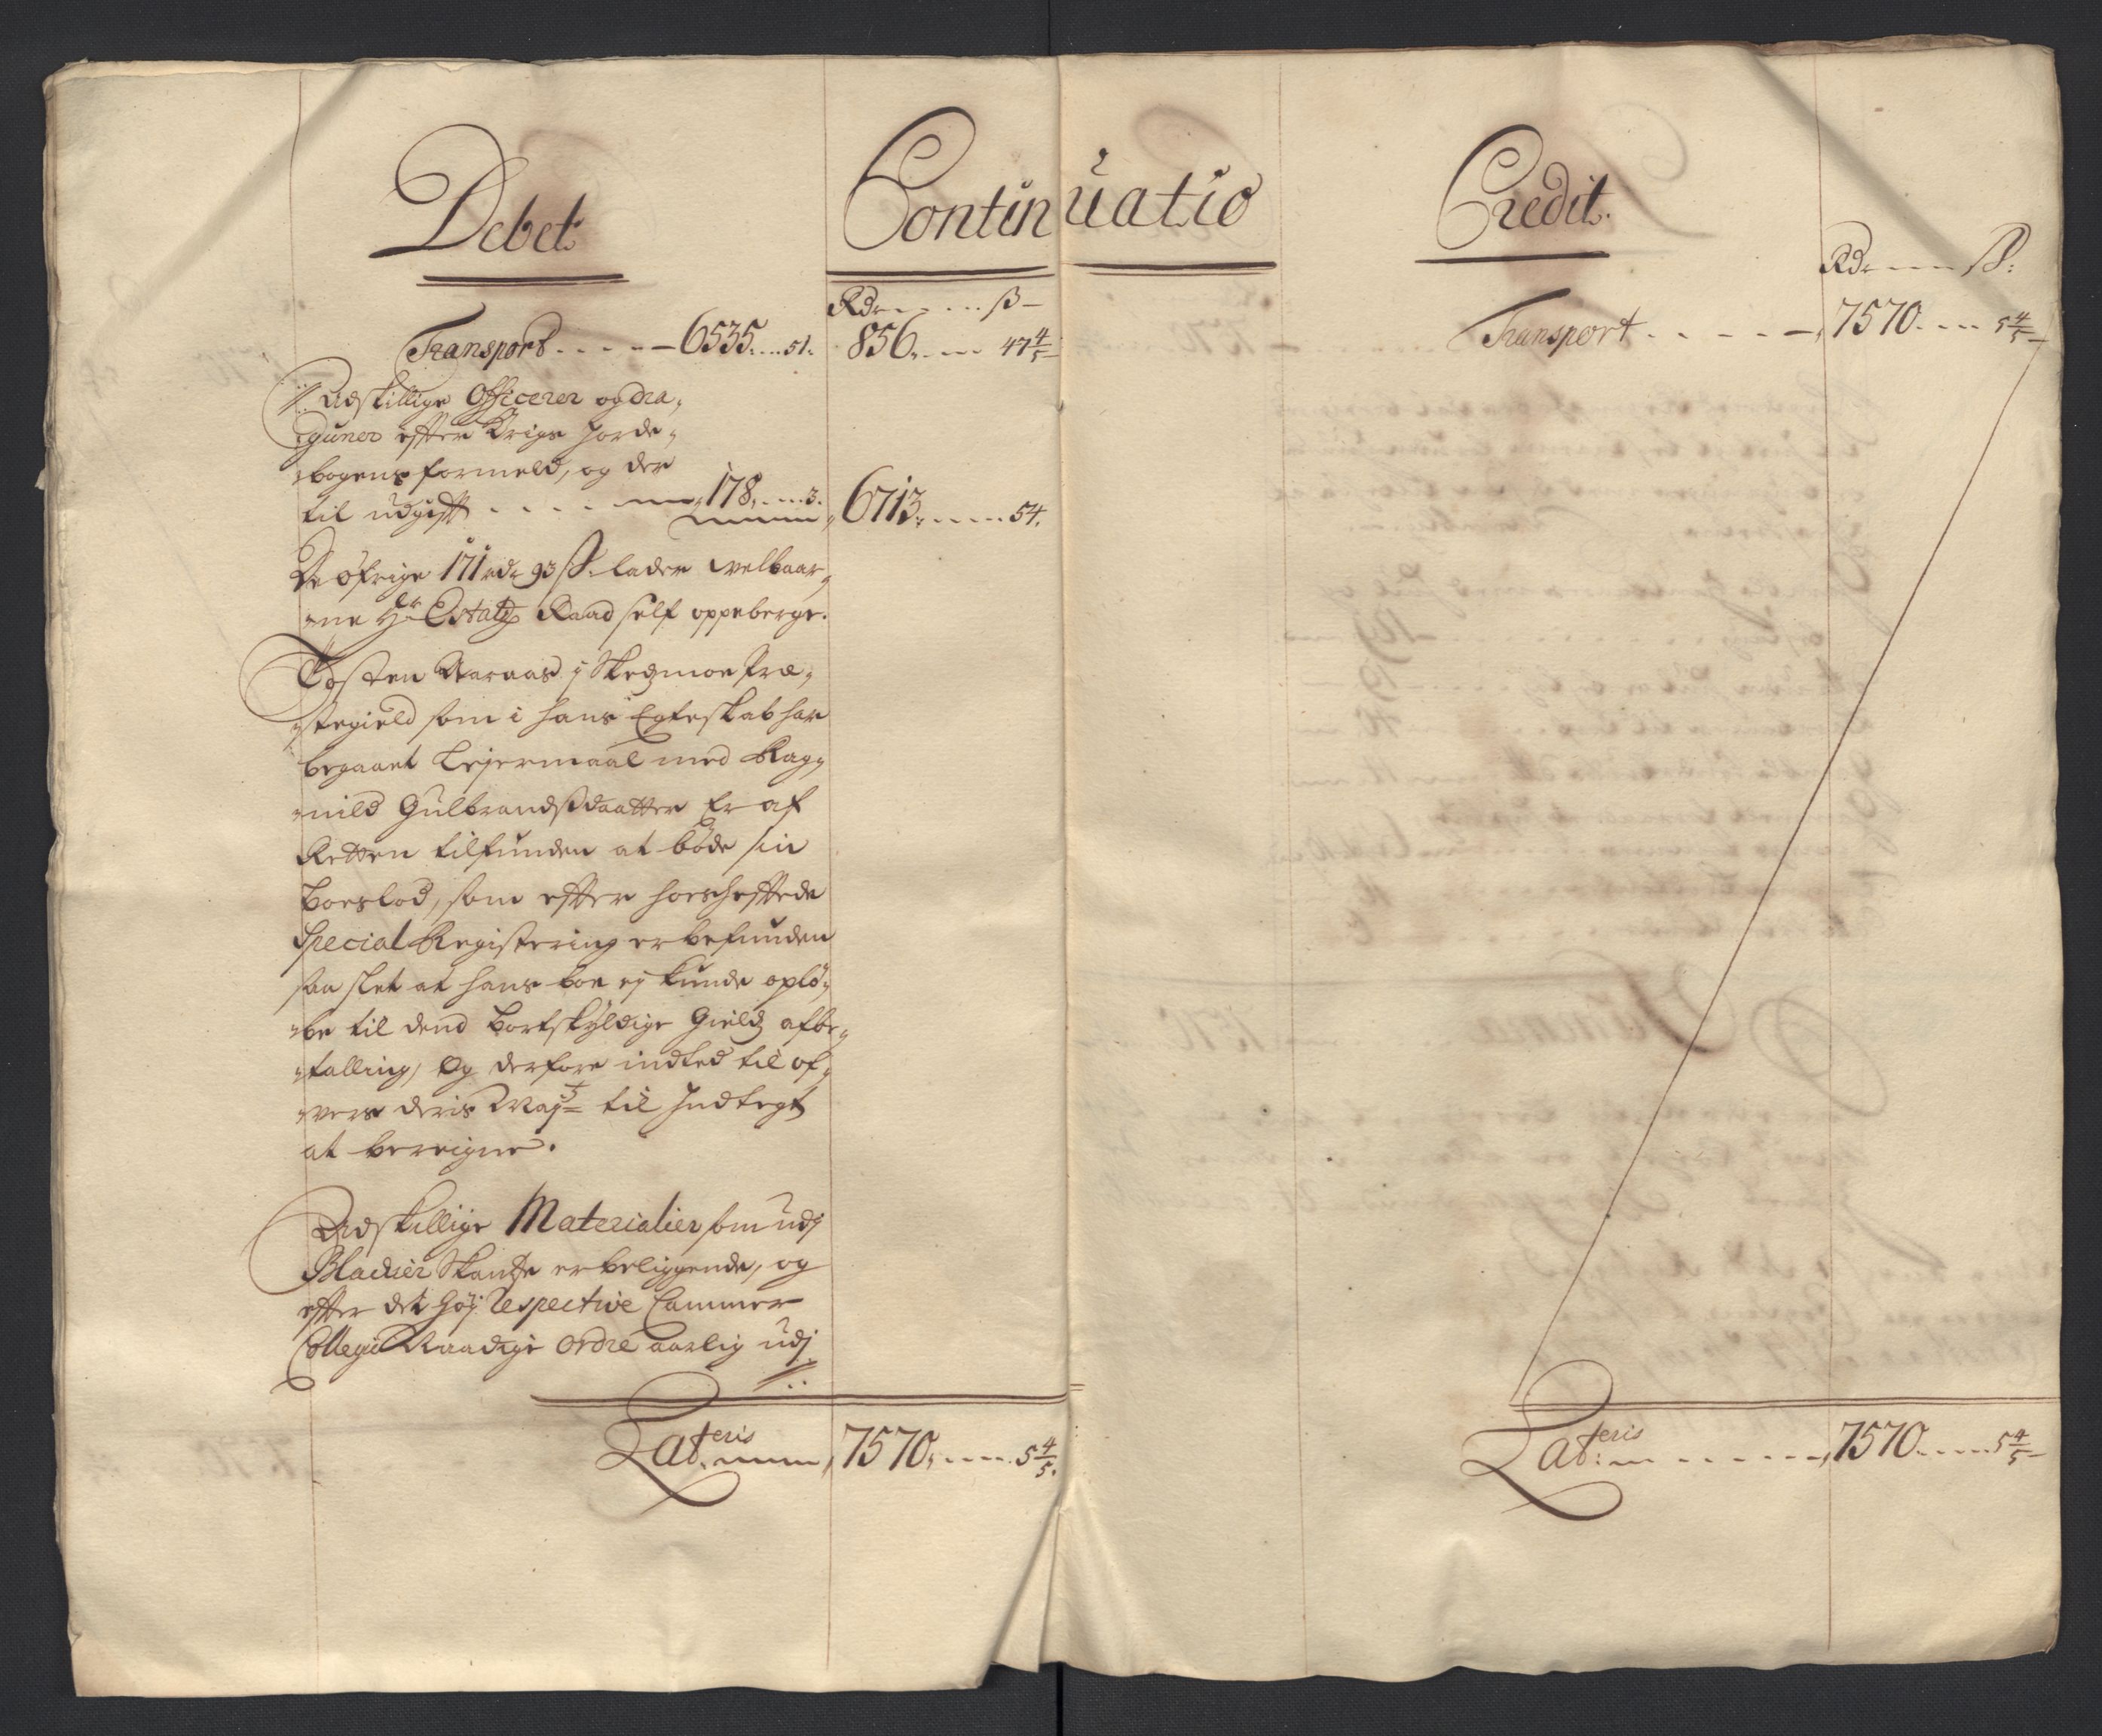 Debet
Continuatio
Credit.
Rdr ß
Transport 6535 51. 856 47 4/5
Udskillige Officerer og dra,
guner efter Krigs Jorde,
bogens formeld, og der
til udgift 178 3. 6713 54.
De øfrige 171 rdr 93 ß. lader welbaar,
ne Hr Estatz Raad self oppeberge.
Tosten Aaraas i Skedzmoe Præ,
stegield som i hans Egteskab har
begaaet Leyermaal med Rag,
nild Gulbrandsdaatter Er af
Retten tilfunden at bøde sin
boeslod, som efter hoeshefftede
Special Registering er befunden
saa slet at hans boe ej kunde oplø,
be til dend bortskyldige Gieldz afbe,
talling, Og derfore indted til of,
vers deris Majt til Indtegt
at bereigne.
Udskillige Materialier som udj
Blacher Skantze er beliggende, og
efter det høj Respective Cammer
Collegii Naadige ordre aarlig udj
Lateris 7570 5 4/5.
Rdr ß:
Transport 7570 5 4/5
Lateris 7570 5 4/5